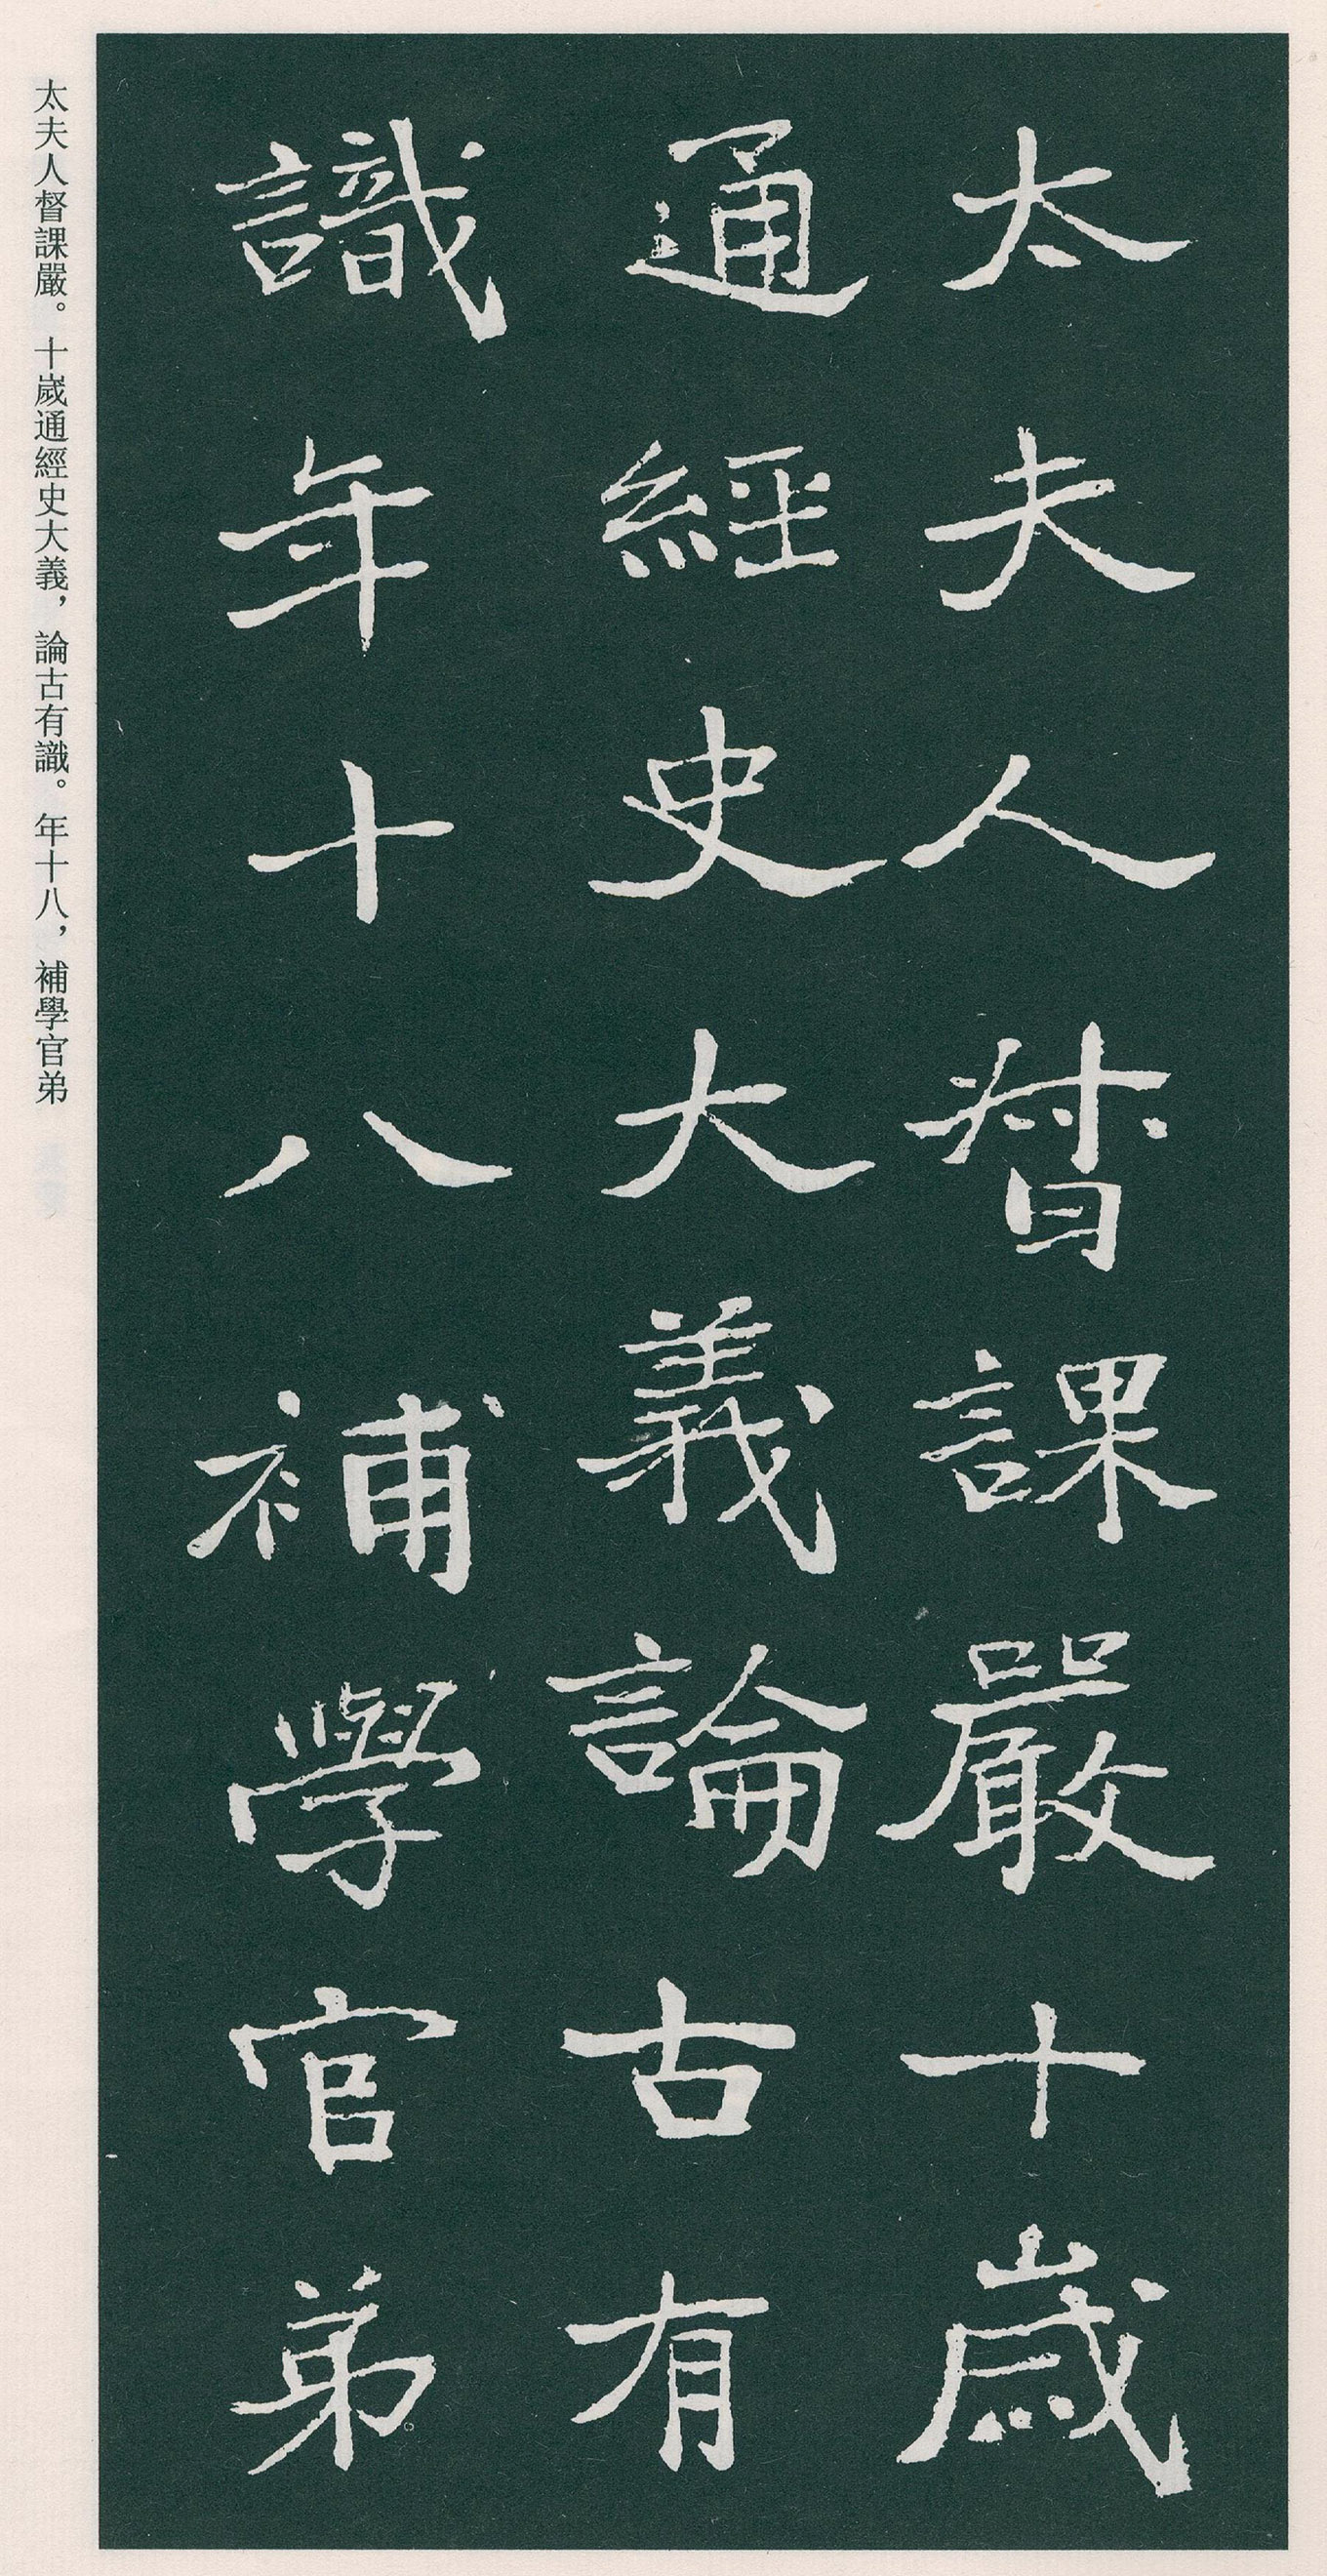 太夫人督課嚴十歲
通經史大義論古有
識年十八補學官弟
太夫人督課嚴。十歲通經史大義，論古有識。年十八，補學官弟